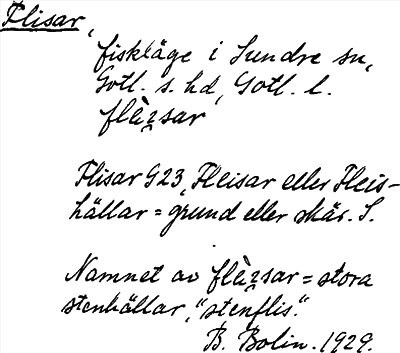 Flisar,
fiskläge i Sundre sn,
Gotl. s. hd, Gotl. l.
flèꭍsar
Flisar G23, Fleisar eller Fleis-
hällar = grund eller skär. S.
Namnet av flèꭍsar = stora
stenhällar, "stenflis".
B. Bolin. 1929.